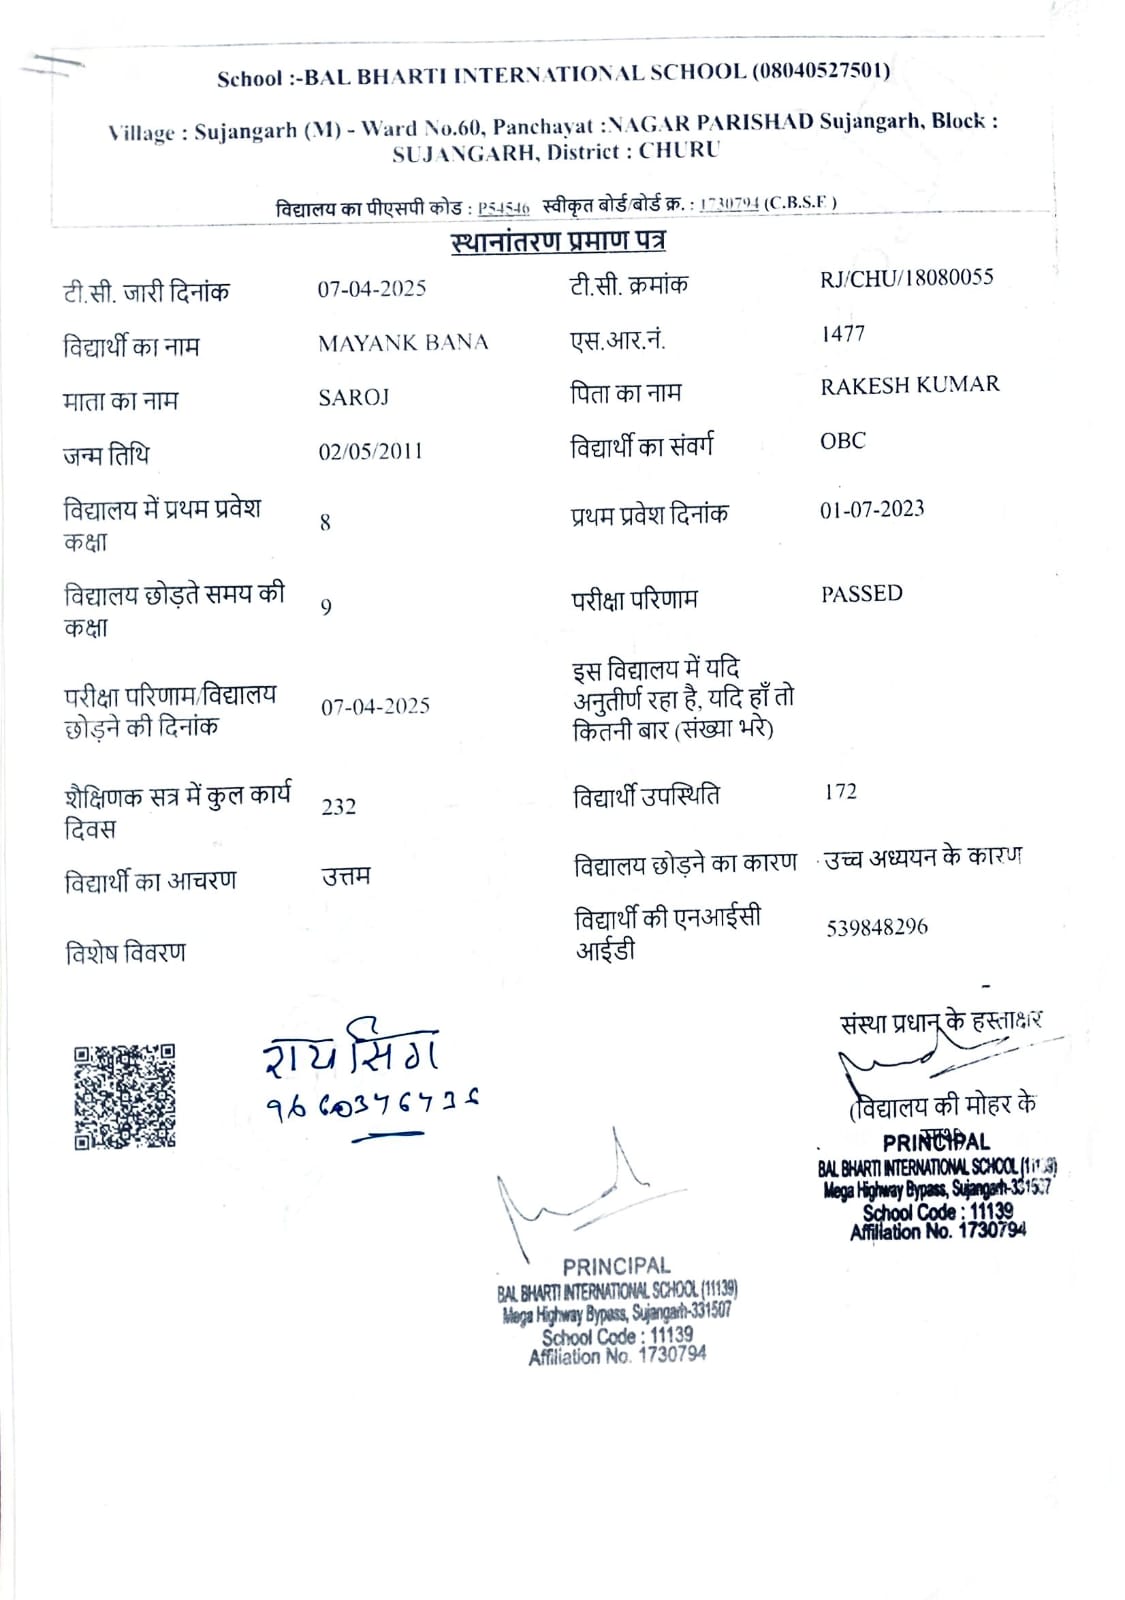 School :-BAL BHARTI INTERNATIONAL SCHOOL (08040527501)
Village : Sujangarh (M) - Ward No.60, Panchayat :NAGAR PARISHAD Sujangarh, Block :
SUJANGARH, District : CHURU
विद्यालय का पीएसपी कोड : P54546 स्वीकृत बोर्ड/बोर्ड क्र. : 1730794 (C.B.S.E )
स्थानांतरण प्रमाण पत्र
टी.सी. जारी दिनांक 07-04-2025 टी.सी. क्रमांक RJ/CHU/18080055
विद्यार्थी का नाम MAYANK BANA एस.आर.नं. 1477
माता का नाम SAROJ पिता का नाम RAKESH KUMAR
जन्म तिथि 02/05/2011 विद्यार्थी का संवर्ग OBC
विद्यालय में प्रथम प्रवेश
कक्षा 8 प्रथम प्रवेश दिनांक 01-07-2023
विद्यालय छोड़ते समय की
कक्षा 9 परीक्षा परिणाम PASSED
परीक्षा परिणाम/विद्यालय
छोड़ने की दिनांक 07-04-2025
इस विद्यालय में यदि
अनुतीर्ण रहा है, यदि हाँ तो
कितनी बार (संख्या भरे)
शैक्षिणक सत्र में कुल कार्य
दिवस 232 विद्यार्थी उपस्थिति 172
विद्यार्थी का आचरण उत्तम विद्यालय छोड़ने का कारण उच्च अध्ययन के कारण
विशेष विवरण
विद्यार्थी की एनआईसी
आईडी 539848296
संस्था प्रधान के हस्ताक्षर
रायसिंग
(विद्यालय की मोहर के
PRINCIPAL
BAL BHARTI INTERNATIONAL SCHOOL
Mega Highway Bypass, Sujangarh-331507
School Code : 11139
Affiliation No. 1730794
PRINCIPAL
BAL BHARTI INTERNATIONAL SCHOOL (11139)
Mega Highway Bypass, Sujangarh-331507
School Code : 11139
Affiliation No. 1730794